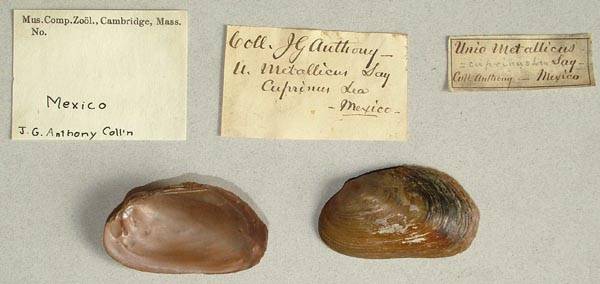 Mus. Comp. Zoöl., Cambridge, Mass.
No.
Mexico
J. G. Anthony Coll'n
Coll. J G Anthony —
U. Metallicus Say
Cuprinus Lea
— Mexico —
Unio Metallicus —
= cuprinus Lea Say —
Coll. Anthony — Mexico